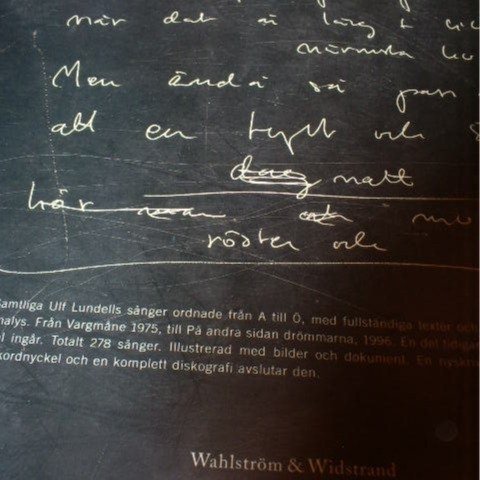 när det är lång t
närmsta
Men ändå så pass
att en tyst och
natt
här
röster och
Samtliga Ulf Lundells sånger ordnade från A till Ö, med fullständiga texter och
nalys. Från Vargmåne 1975, till På andra sidan drömmarna, 1996. En del tidigar
l ingår. Totalt 278 sånger. Illustrerad med bilder och dokument. En nyskriv
kordnyckel och en komplett diskografi avslutar den.
Wahlström & Widstrand